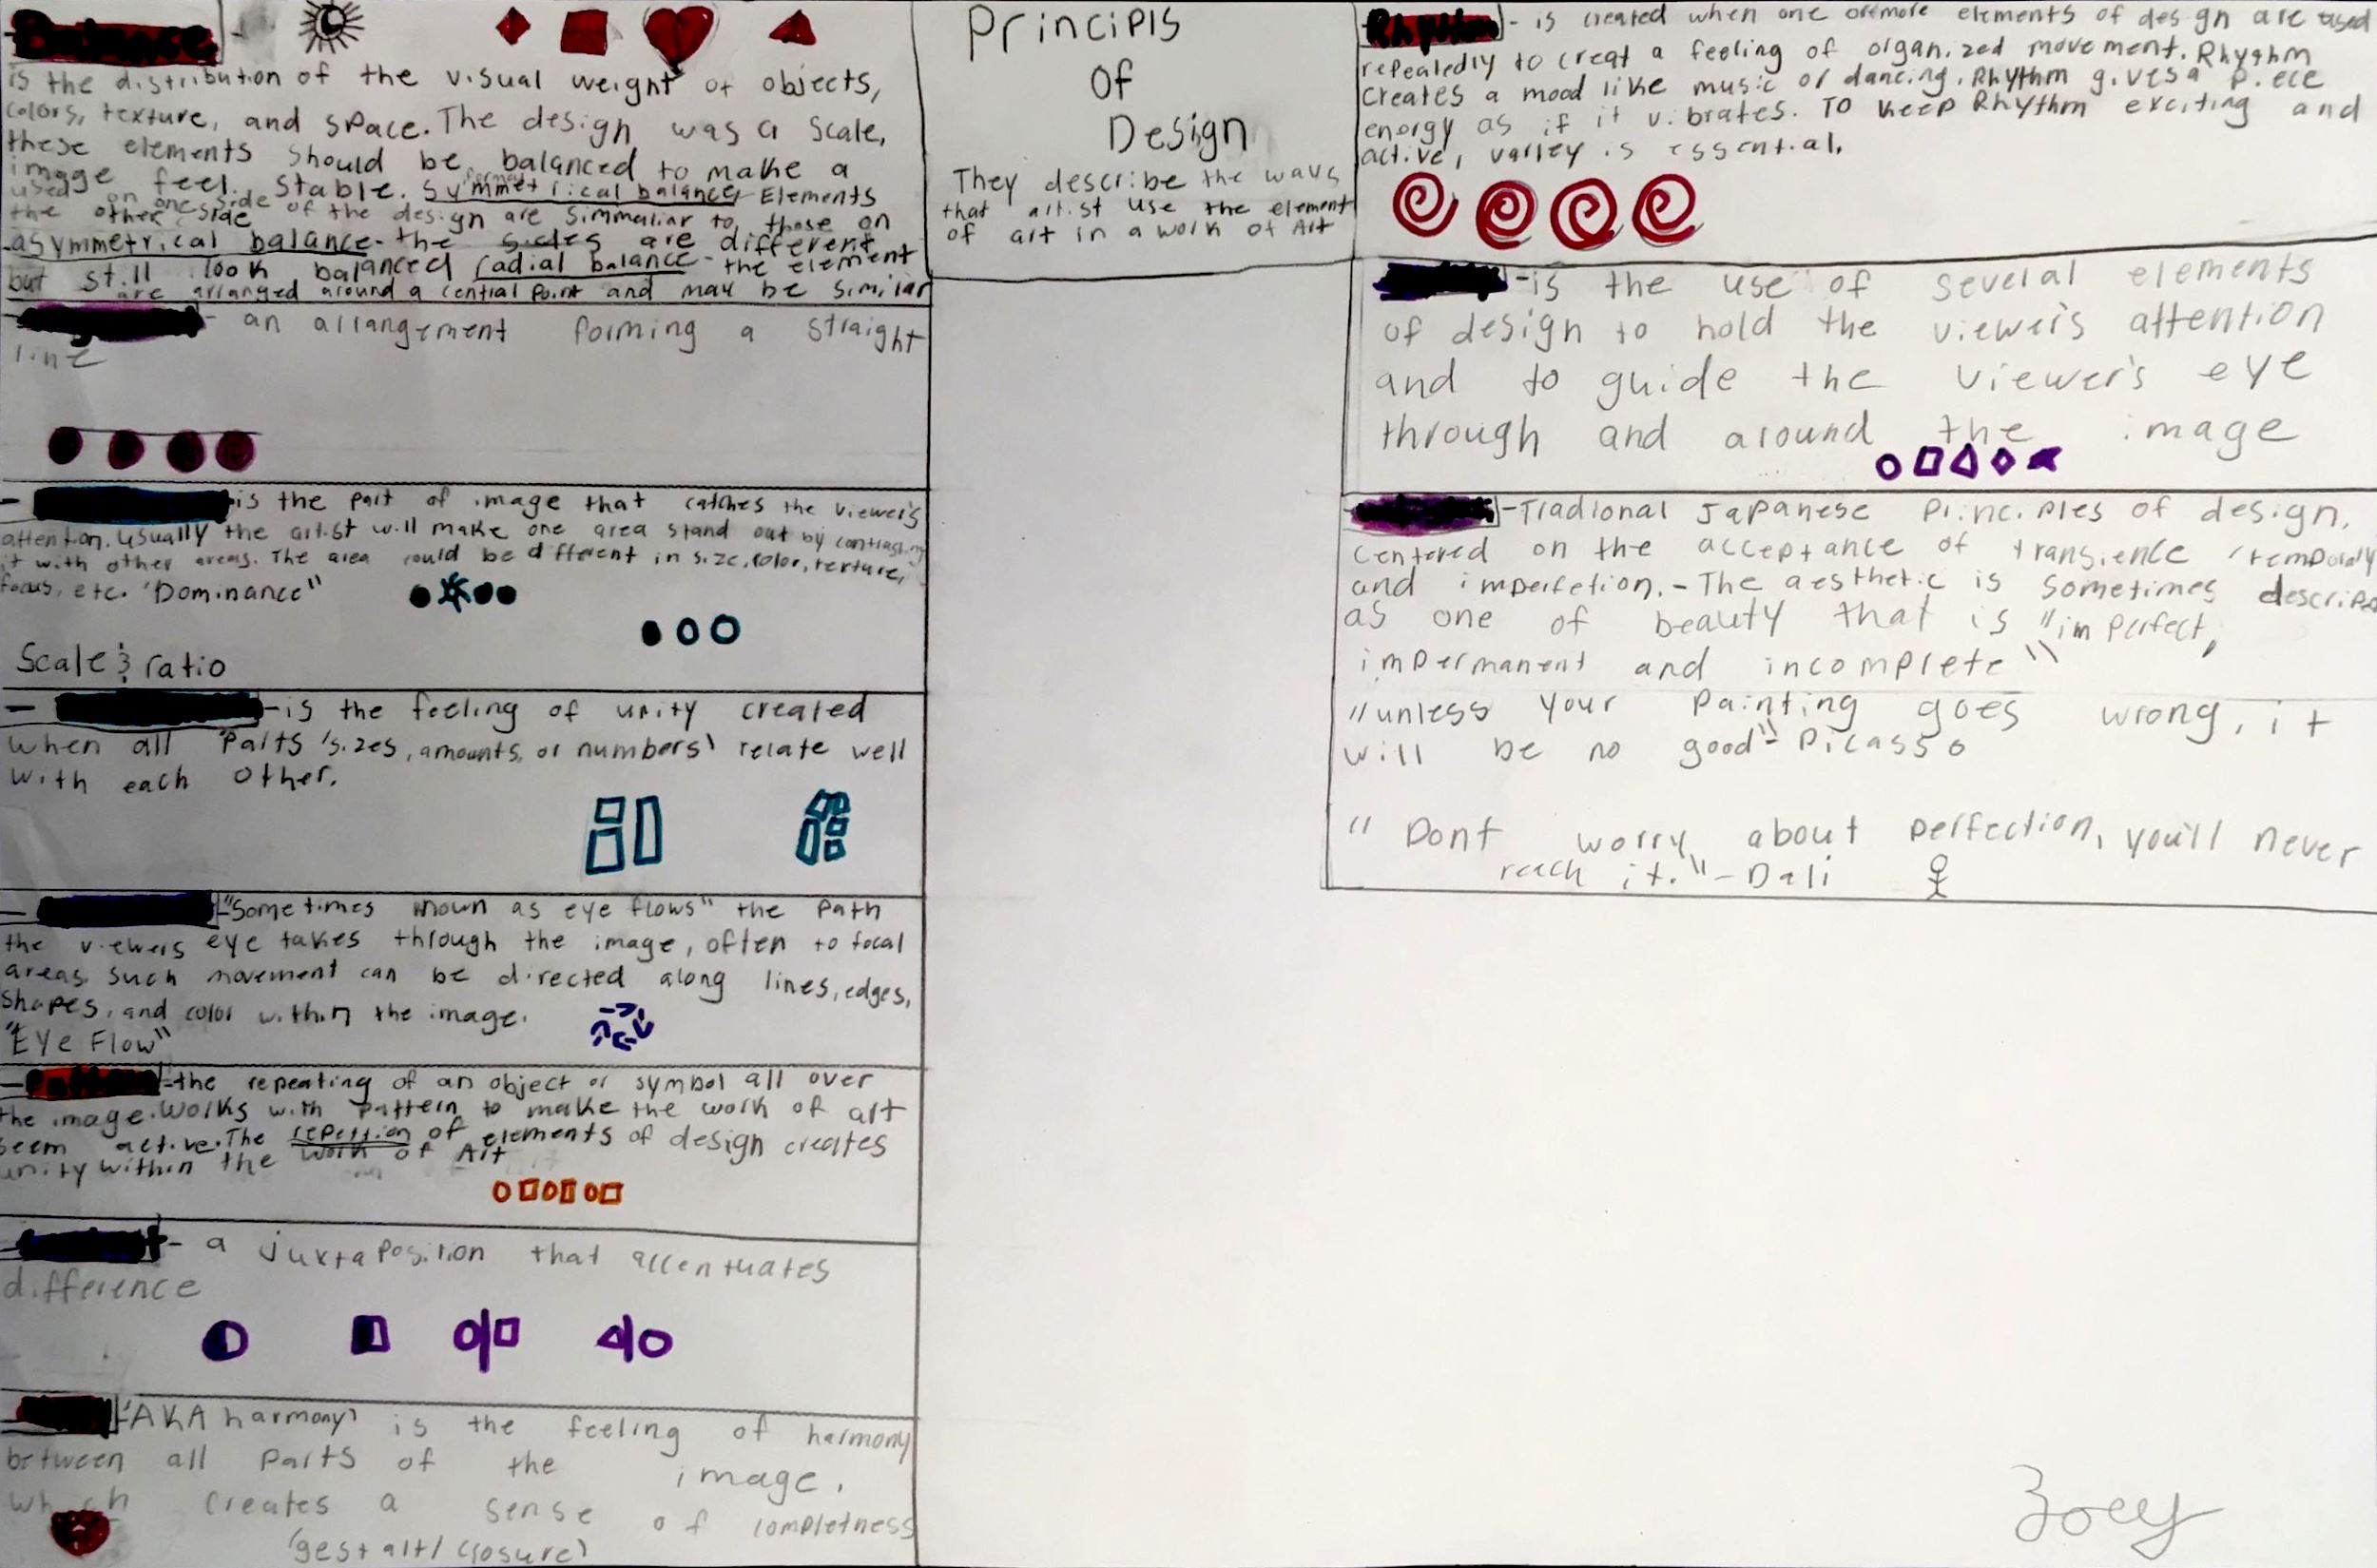 Balance -
is the distribution of the visual weight of objects,
colors, texture, and space. The design was a scale,
these elements should be balanced to make a
image feel. stable. symmetrical balance Elements
formal
used on one side of the design are simmaliar to those on
the other side
asymmetrical balance - the sides are different
but still look balanced radial balance - the element
are arranged around a central point and may be similar
- an arrangement forming a straight
line
- is the part of image that catches the viewer's
attention. usually the artist will make one area stand out by contrasting
it with other areas. The area could be different in size, color, texture,
focus, etc. "Dominance"
Scale & ratio
- is the feeling of unity created
when all parts 'sizes, amounts, or numbers' relate well
with each other.
- "Sometimes known as eye flows" the path
the viewers eye takes through the image, often to focal
areas. such movement can be directed along lines, edges,
shapes, and color within the image.
"Eye Flow"
- Pattern - the repeating of an object or symbol all over
the image. works with pattern to make the work of art
seem active. The repettion of elements of design creates
unity within the work of Art
- a juxtaposition that accentuates
difference
'AKA harmony' is the feeling of harmony
between all parts of the image.
which creates a sense of completness
'gestalt/closure'
Principls
Of
Design
They describe the ways
that artist use the element
of art in a work of Art
Rhythm - is created when one ormore elements of design are used
repealedly to creat a feeling of organized movement. Rhythm
creates a mood like music or dancing. Rhythm gives a piece
energy as if it vibrates. To keep Rhythm exciting and
active, variey is essential.
- is the use of several elements
of design to hold the viewer's attention
and to guide the viewer's eye
through and around the image
- Tradional Japanese Principles of design.
centered on the acceptance of transience 'temporaly
and imperfetion. - The aesthetic is sometimes described
as one of beauty that is "imperfect,
impermanent and incomplete"
"unless your painting goes wrong, it
will be no good" - Picasso
"Dont worry about perfection, you'll never
reach it." - Dali
Zoey